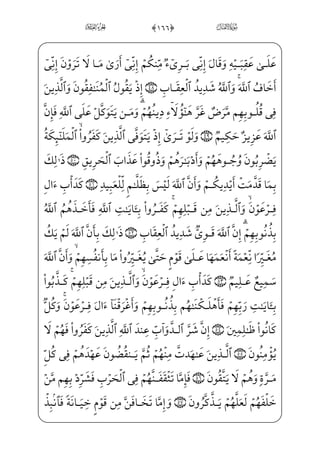 الجزء العاشر ﴿١٦٦﴾ سورة الأنفال
عَلَىٰ عَقِبَيْهِ وَقَالَ إِنِّى بَرِىٓءٌ مِّنكُمْ إِنِّىٓ أَرَىٰ مَا لَا تَرَوْنَ إِنِّىٓ
أَخَافُ ٱللَّهَ ۚ وَٱللَّهُ شَدِيدُ ٱلْعِقَابِ ﴿٤٨﴾ إِذْ يَقُولُ ٱلْمُنَٰفِقُونَ وَٱلَّذِينَ
فِى قُلُوبِهِم مَّرَضٌ غَرَّ هَٰٓؤُلَآءِ دِينُهُمْ ۗ وَمَن يَتَوَكَّلْ عَلَى ٱللَّهِ فَإِنَّ
ٱللَّهَ عَزِيزٌ حَكِيمٌ ﴿٤٩﴾ وَلَوْ تَرَىٰٓ إِذْ يَتَوَفَّى ٱلَّذِينَ كَفَرُوا۟ ۙ ٱلْمَلَٰٓئِكَةُ
يَضْرِبُونَ وُجُوهَهُمْ وَأَدْبَٰرَهُمْ وَذُوقُوا۟ عَذَابَ ٱلْحَرِيقِ ﴿٥٠﴾ ذَٰلِكَ
بِمَا قَدَّمَتْ أَيْدِيكُمْ وَأَنَّ ٱللَّهَ لَيْسَ بِظَلَّٰمٍ لِّلْعَبِيدِ ﴿٥١﴾ كَدَأْبِ ءَالِ
فِرْعَوْنَ ۙ وَٱلَّذِينَ مِن قَبْلِهِمْ ۚ كَفَرُوا۟ بِـَٔايَٰتِ ٱللَّهِ فَأَخَذَهُمُ ٱللَّهُ
بِذُنُوبِهِمْ ۗ إِنَّ ٱللَّهَ قَوِىٌّ شَدِيدُ ٱلْعِقَابِ ﴿٥٢﴾ ذَٰلِكَ بِأَنَّ ٱللَّهَ لَمْ يَكُ
مُغَيِّرًا نِّعْمَةً أَنْعَمَهَا عَلَىٰ قَوْمٍ حَتَّىٰ يُغَيِّرُوا۟ مَا بِأَنفُسِهِمْ ۙ وَأَنَّ ٱللَّهَ
سَمِيعٌ عَلِيمٌ ﴿٥٣﴾ كَدَأْبِ ءَالِ فِرْعَوْنَ ۙ وَٱلَّذِينَ مِن قَبْلِهِمْ ۚ كَذَّبُوا۟
بِـَٔايَٰتِ رَبِّهِمْ فَأَهْلَكْنَٰهُم بِذُنُوبِهِمْ وَأَغْرَقْنَآ ءَالَ فِرْعَوْنَ ۚ وَكُلٌّ
كَانُوا۟ ظَٰلِمِينَ ﴿٥٤﴾ إِنَّ شَرَّ ٱلدَّوَآبِّ عِندَ ٱللَّهِ ٱلَّذِينَ كَفَرُوا۟ فَهُمْ لَا
يُؤْمِنُونَ ﴿٥٥﴾ ٱلَّذِينَ عَٰهَدتَّ مِنْهُمْ ثُمَّ يَنقُضُونَ عَهْدَهُمْ فِى كُلِّ
مَرَّةٍ وَهُمْ لَا يَتَّقُونَ ﴿٥٦﴾ فَإِمَّا تَثْقَفَنَّهُمْ فِى ٱلْحَرْبِ فَشَرِّدْ بِهِم مَّنْ
خَلْفَهُمْ لَعَلَّهُمْ يَذَّكَّرُونَ ﴿٥٧﴾ وَإِمَّا تَخَافَنَّ مِن قَوْمٍ خِيَانَةً فَٱنۢبِذْ